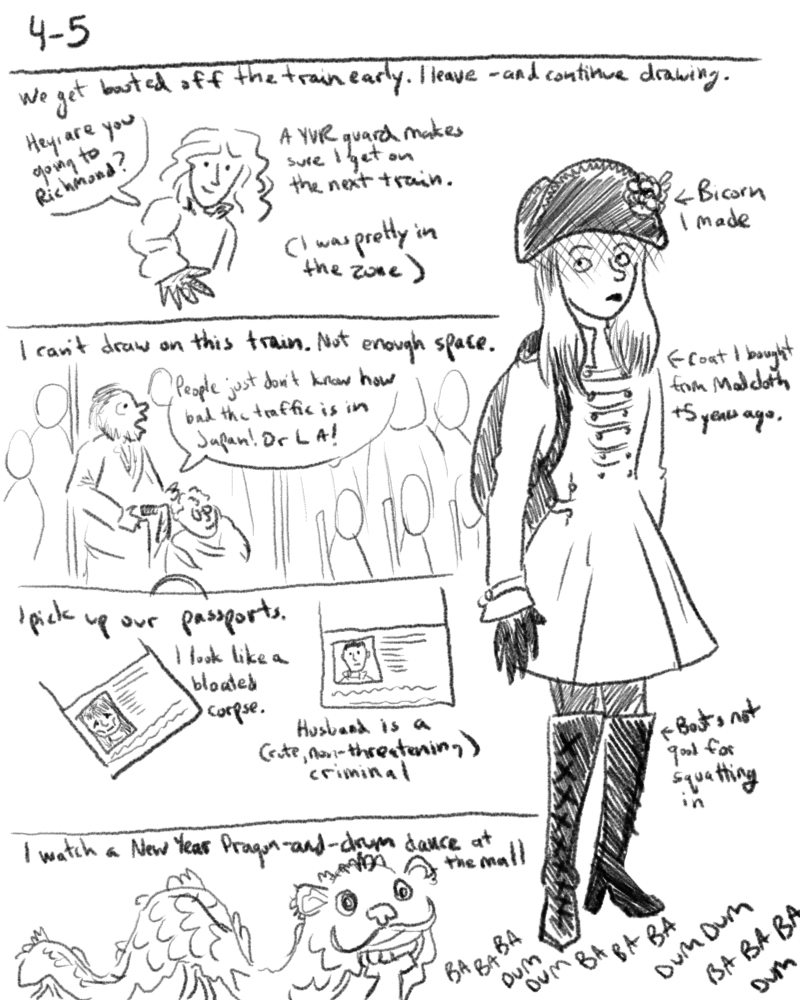 4-5
We get booted off the train early. I leave - and continue drawing.
Hey, are you
going to
Richmond?
A YVR guard makes
sure I get on
the next train.
(I was pretty in
the zone)
← Bicorn
I made
I can't draw on this train. Not enough space.
People just don't know how
bad the traffic is in
Japan! Or LA!
← Coat I bought
from Modcloth
+5 years ago.
I pick up our passports.
I look like a
bloated
corpse.
Husband is a
(cute, non-threatening)
criminal
← Boots not
good for
squatting
in
I watch a New Year Dragon-and-drum dance at
the mall
BA BA BA
DUM
DUM BA BA BA
DUM DUM
BA BA BA
DUM